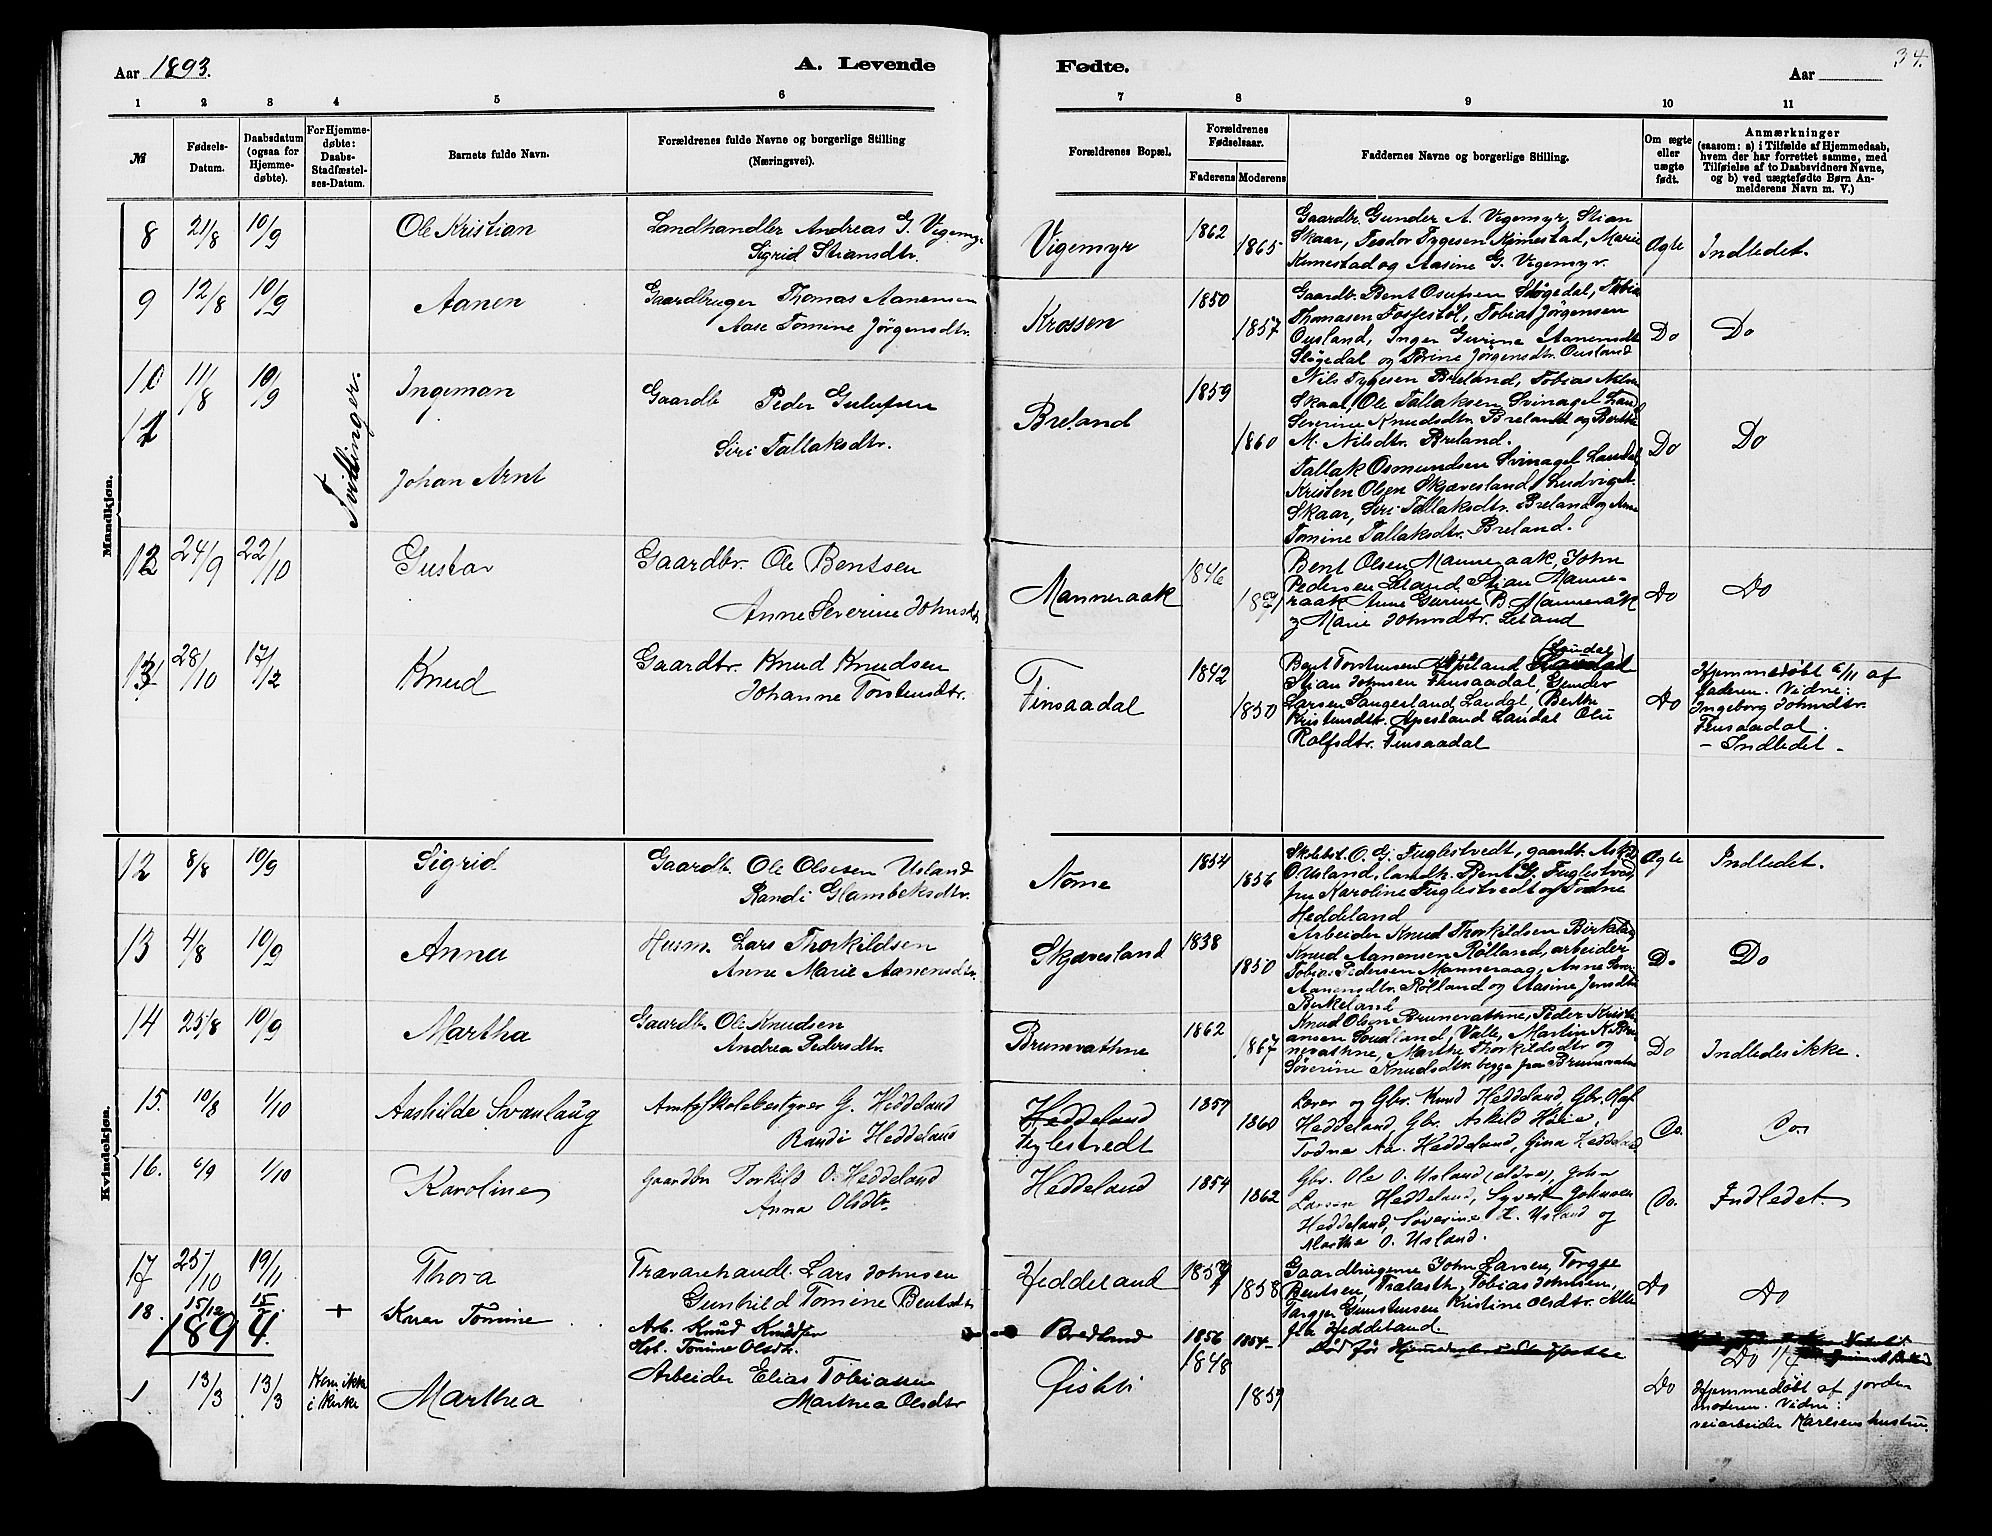 34.
Aar 1893.
A. Levende
Fødte.
Aar
1 2 3 4 5 6 7 8 9 10 11
№
Fødsels-
Datum.
Daabsdatum
(ogsaa for
Hjemme-
døbte).
For Hjemme-
døbte:
Daabs-
Stadfæstel-
ses-Datum.
Barnets fulde Navn.
Forældrenes fulde Navne og borgerlige Stilling
(Næringsvei).
Forældrenes Bopæl.
Forældrenes
Fødselsaar.
Faderens
Moderens
Faddernes Navne og borgerlige Stilling.
Om ægte
eller
uægte
født.
Anmærkninger
(saasom: a) i Tilfælde af Hjemmedaab,
hvem der har forrettet samme, med
Tilføielse af to Daabsvidners Navne,
og b) ved uægtefødte Børn An-
melderens Navn m. V.)
Mandkjøn.
8 21/8 10/9 Ole Kristian
Landhandler Andreas G. Vigemyr
Sigrid Stiansdtr.
Vigemyr 1862 1865
Gaardbr. Gunder A. Vigemyr, Stian
Skaar, Teodor Tygesen Kimestad, Marie
Kimestad og Aasine G. Vigemyr.
Ægte Indledet.
9 12/8 10/9 Aanen
Gaardbruger Thomas Aanensen
Aase Tomine Jørgensdtr.
Krossen 1850 1857
Gaardb. Bent Osufsen Sløgedal, Tobias
Thomasen Fossestøl, Tobias Jørgensen
Ousland, Inger Gurine Aanensdtr
Sløgedal og Trine Jørgensdtr. Ousland
Do Do
10 11/8 10/9 Ingeman
11 Johan Arnt
Tvillinger.
Gaardb Peder Gulufsen
Siri Tallaksdtr.
Breland 1859 1860
Nils Tygesen Breland, Tobias Nilsen
Skaar, Ole Tallaksen Svinagel Laud.
Severine Knudsdtr. Breland og Berthe
M. Nilsdtr. Breland.
Tallak Osmundsen Svinagel Laudal
Kristen Olsen Skjævesland, Ludvig A.
Skaar, Siri Tallaksdtr. Breland og Anne
Tomine Tallaksdtr. Breland.
Do Do
12 24/9 22/10 Gustav
Gaardbr. Ole Bentsen
Anne Severine Johnsdtr
Manneraak 1846
Bent Olsen Manneraak, John
Pedersen Leland Stian Manne-
raak Anne Gurine B. Manneraak
og Marie Johnsdtr. Leland
Do Do
13 28/10 17/12 Knud
Gaardbr. Knud Knudsen
Johanne Torstensdtr.
Finsaadal 1842 1850
(Laudal)
Bent Torstensen
Stian Johnsen Finsaadal, Gunder
Larsen Laugesland, Laudal, Berthe
Kristensdtr. Apesland Laudal Olu
Rolfsdtr. Finsaadal
Do
Hjemmedøbt 6/11 af
faderen. Vidne:
Ingeborg Johnsdtr.
Finsaadal.
– Indledet –
Kvindekjøn.
12 8/8 10/9 Sigrid
Gaardb. Ole Olsen Usland
Randi Glambeksdtr.
Nome 1854 1856
Skolebst. O. G. Fuglestvedt, gaardb. Askild
O. Usland, landh. Bent G. Fuglestved
fru Karoline Fuglestvedt og Todne
Heddeland
Ægte Indledet.
13 4/8 10/9 Anna
Husm. Lars Thorkildsen
Anne Marie Aanensdtr
Skjævesland 1838 1850
Arbeider Knud Thorkildsen Birkeland
Knud Aanensen Rølland, arbeider
Tobias Pedersen Manneraag, Anne
Aanensdtr. Rølland og Aasine Jensdtr.
Birkeland
Do Do
14 25/8 10/9 Martha
Gaardb. Ole Knudsen
Andrea Pedersdtr.
Brunvathne 1862 1867
Knud Olsen Brunvathne, Peder Kristi-
ansen Soudland, Valle, Martin K. Bru-
nevathne, Marthe Thorkildsdtr og
Søverine Knudsdtr. begge fra Brunvatne
Do Indledes ikke.
15. 10/8 1/10 Aashilde Svanlaug
Amtsskolebestyrer G. Heddeland
Randi Heddeland
Heddeland
Fuglestvedt 1857 1860
Lærer og Gbr. Knud Heddeland, Gbr. Olaf
Heddeland, Gbr. Askild Høie,
Todne Aa. Heddeland, Gina Heddeland
Do. Do.
16. 6/9 1/10 Karoline
Gaardbr Torkild O. Heddeland
Anna Olsdtr.
Heddeland 1854 1862
Gbr. Ole O. Usland (eldre), John
Larsen Heddeland, Syvert Johnsen
Heddeland, Søverine K. Usland og
Martha O. Usland.
Do. Indledet.
17 25/10 19/11 Thora
Trævarehandl. Lars Johnsen
Gunhild Tomine Bentsdtr
Heddeland 1857 1858
Gaardbrugerne John Larsen, Torgje
Bentsen, Tralasth. Tobias Johnsen,
Targjer Gunstensen Kristine Olsdtr. Alle
fra Heddeland.
Do Do
18. 15/12 15. +
Arb. Knud Knudsen
Tomine Olsdtr.
Bredland 1856 1854
Død før
1894.
1 13/3 13/3 Kom ikke
i Kirke
Marthea
Arbeider Elias Tobiassen
Marthea Olsdtr
Øistbø 1848 1859
Do
Do 1/4
Hjemmedøbt af jorde-
moderen. Vidne:
veiarbeider Karlsens hustru.